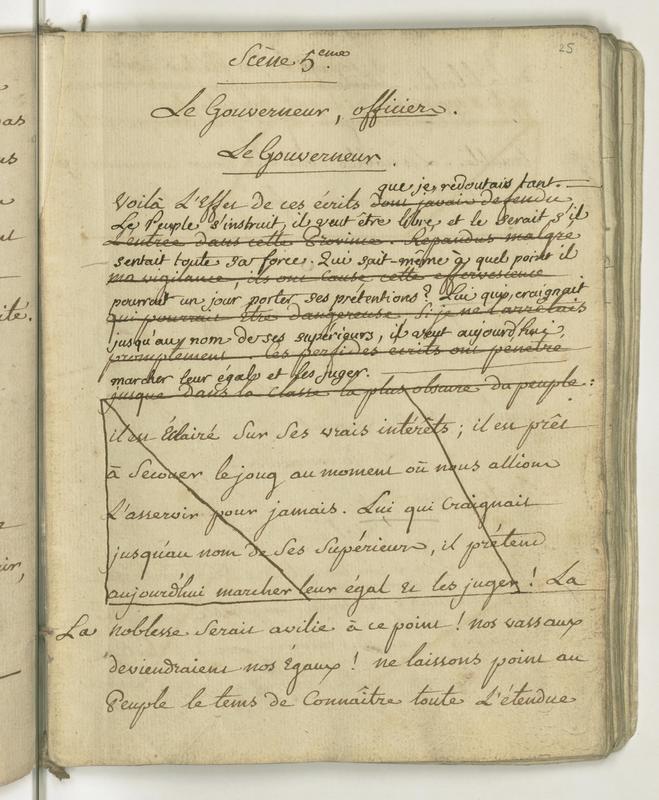 25
Scène 5eme.
Le Gouverneur, officier.
Le Gouverneur.
que je redoutais tant.
Voilà L'Effet de ces écrits dont javais defendu
Le Peuple s'instruit, il veut être libre et le serait, s'il
L'entrée dans cette Province. Répandus malgré
sentait toute sa force. Qui sait-même à quel point il
ma vigilance, ils ont causé cette effervescence
pourrait un jour porter ses prétentions? Lui qui craignait
qui pourrait être dangereuse. Si je ne l'arrêtais
jusqu'au nom de ses supérieurs, il veut aujourd'hui
promptement. Ces perfides écrits ont pénétré
marcher leur égal et les juger.
jusque dans la Classe la plus obscure du peuple:
il est Éclairé Sur Ses vrais intérêts; il est prêt
à Secouer le joug au moment où nous allions
L'asservir pour jamais. Lui qui Craignait
jusqu'au nom de Ses Supérieurs, il prétend
aujourd'hui marcher leur égal Et les juger! La
La noblesse Serait avilie à ce point! nos vassaux
deviendraient nos Égaux! ne laissons point au
Peuple le tems de Connaître toute L'étendue